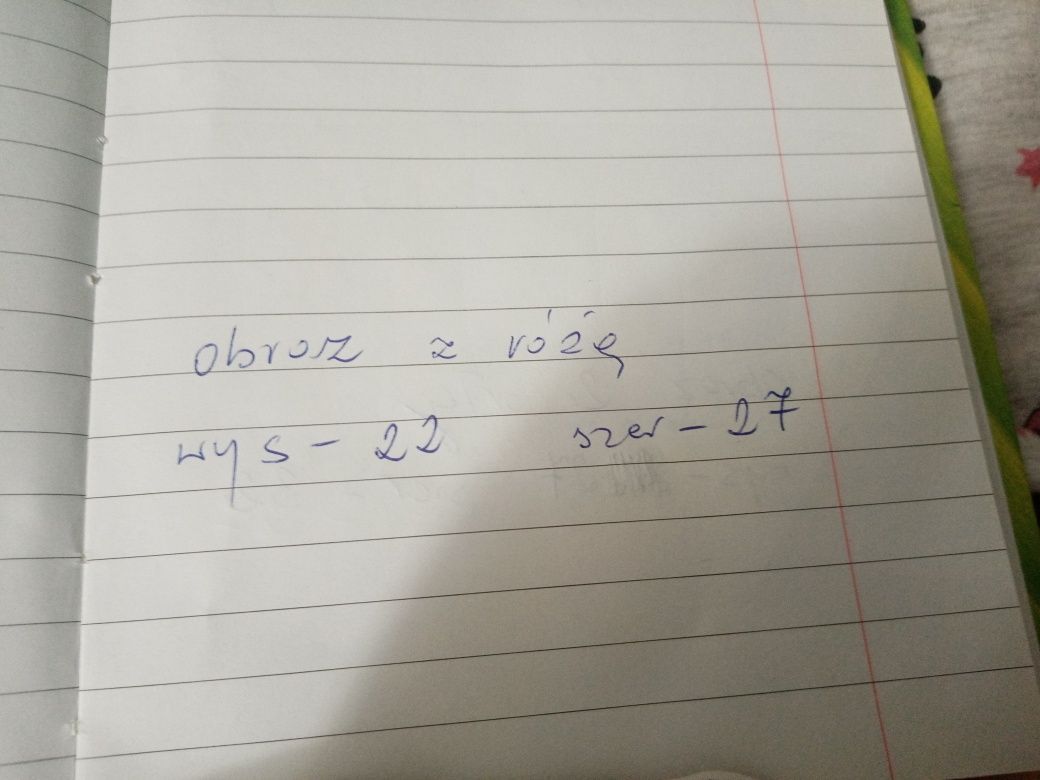 obraz z różą
wys - 22 szer - 27